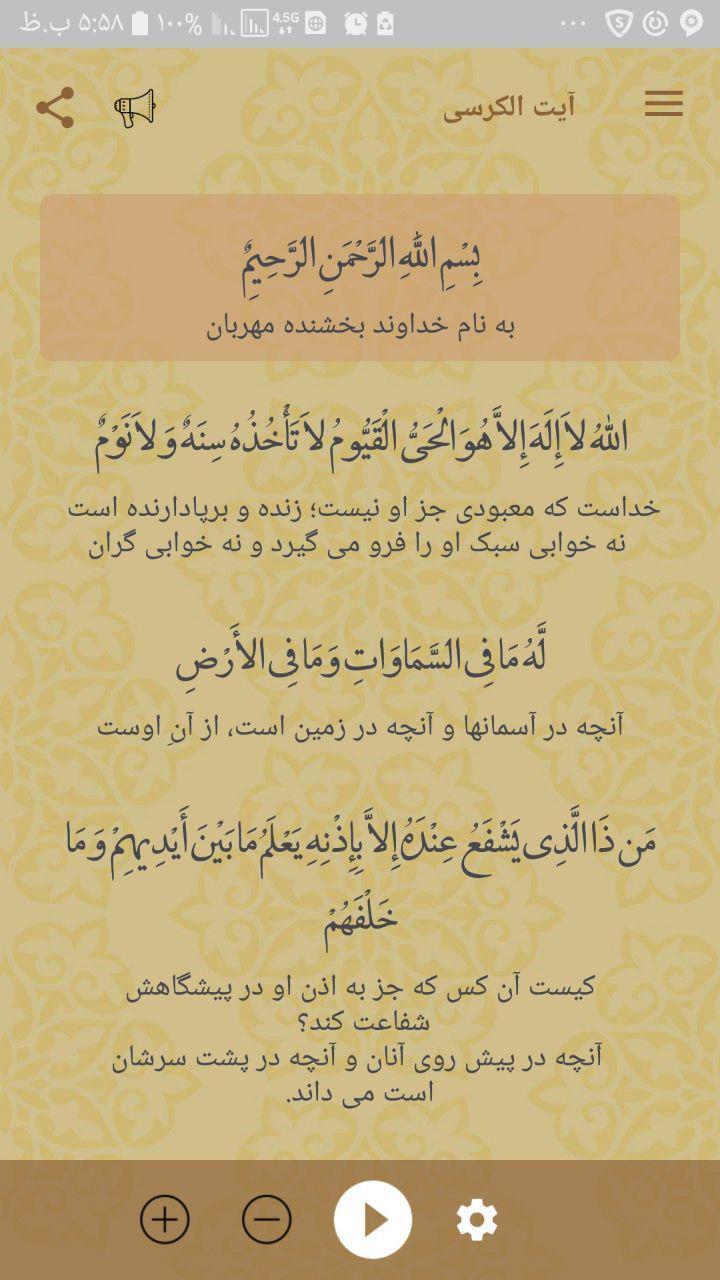 ۵:۵۸ ب.ظ ۱۰۰% 4.5G
آیت الکرسی
بِسْمِ اللّهِ الرَّحْمَنِ الرَّحِيمٌِ
به نام خداوند بخشنده مهربان
اللّهُ لاَ إِلَهَ إِلاَّ هُوَ الْحَيُّ الْقَيُّومُ لاَ تَأْخُذُهُ سِنَةٌ وَلاَ نَوْمٌ
خداست که معبودی جز او نیست؛ زنده و برپادارنده است
نه خوابی سبک او را فرو می گیرد و نه خوابی گران
لَّهُ مَا فِي السَّمَاوَاتِ وَمَا فِي الأَرْضِ
آنچه در آسمانها و آنچه در زمین است، از آنِ اوست
مَن ذَا الَّذِي يَشْفَعُ عِنْدَهُ إِلاَّ بِإِذْنِهِ يَعْلَمُ مَا بَيْنَ أَيْدِيهِمْ وَمَا
خَلْفَهُمْ
کیست آن کس که جز به اذن او در پیشگاهش
شفاعت کند؟
آنچه در پیش روی آنان و آنچه در پشت سرشان
است می داند.